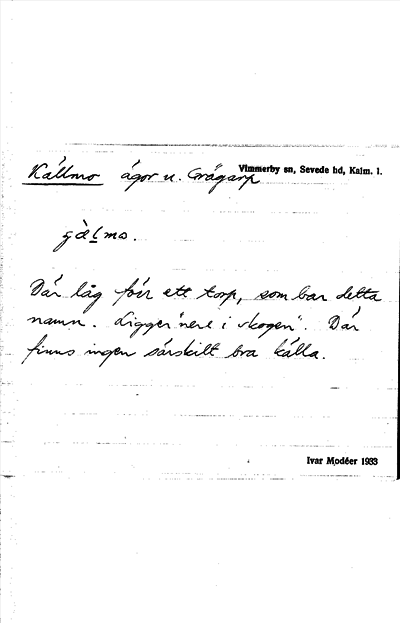 Vimmerby sn, Sevede hd, Kalm. l.
Källmo ägor u. Grågarp
Där låg förr ett torp, som bar detta
namn. Ligger "nere i skogen". Där
finns ingen särskilt bra källa.
Ivar Modéer 1933